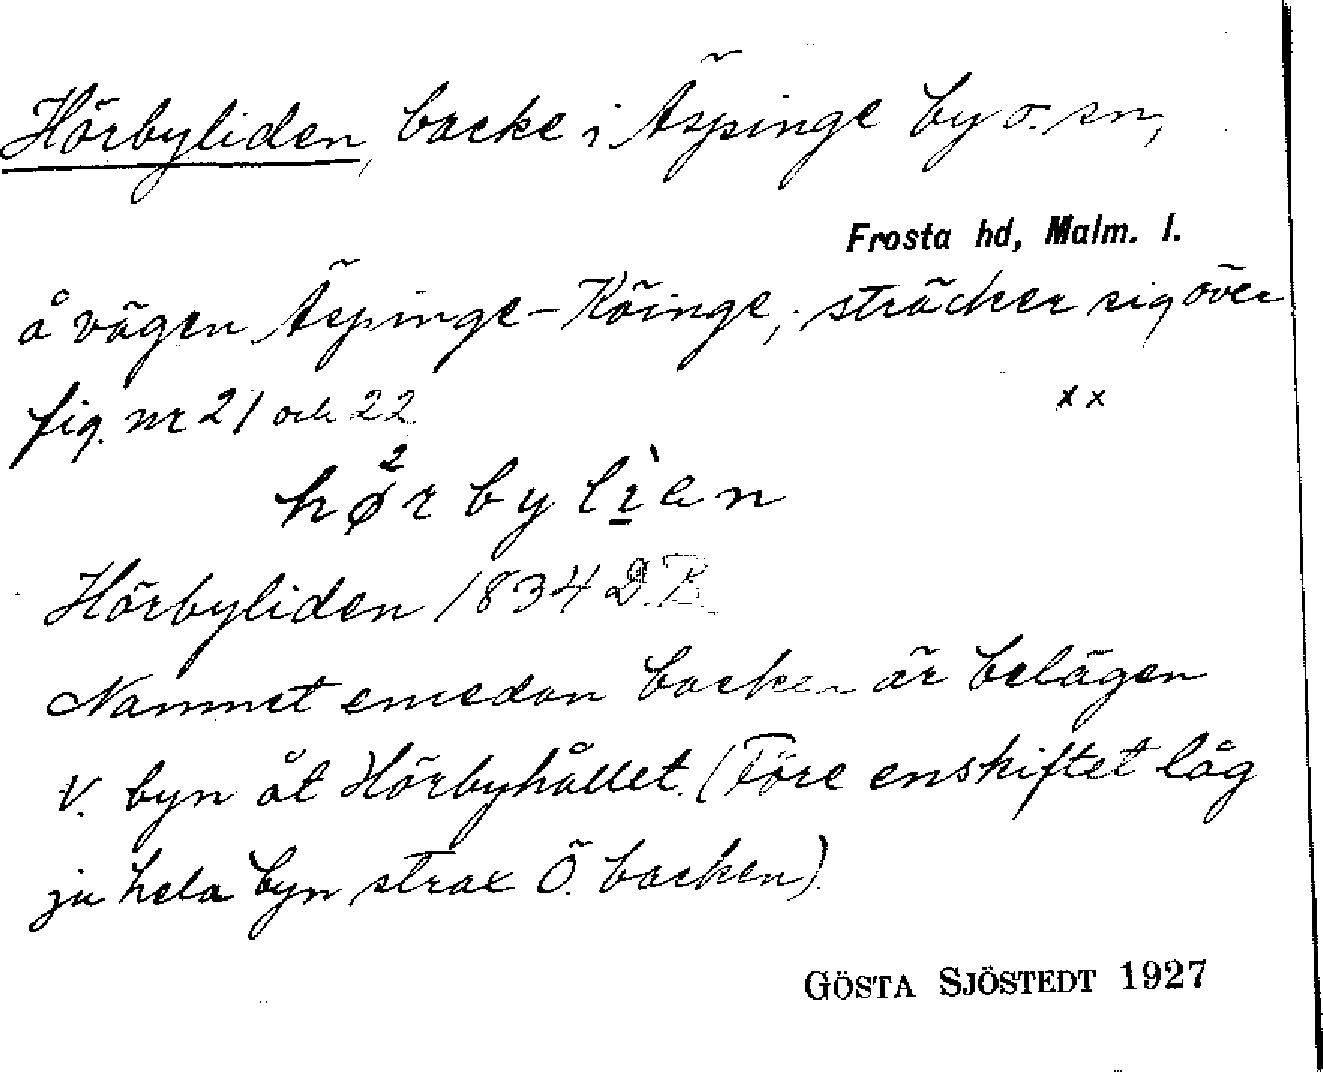 Hörbyliden, backe i Äspinge by o. sn,
Frosta hd, Malm. l.
å vägen Äspinge-Köinge, sträcker sig över
fig. nr 21 och 22
x x
hø²rbylìen
Hörbyliden 1834 D.B.
Namnet emedan backen är belägen
V. byn åt Hörbyhållet. (Före enskiftet låg
ju hela byn strax Ö. backen).
GÖSTA SJÖSTEDT 1927